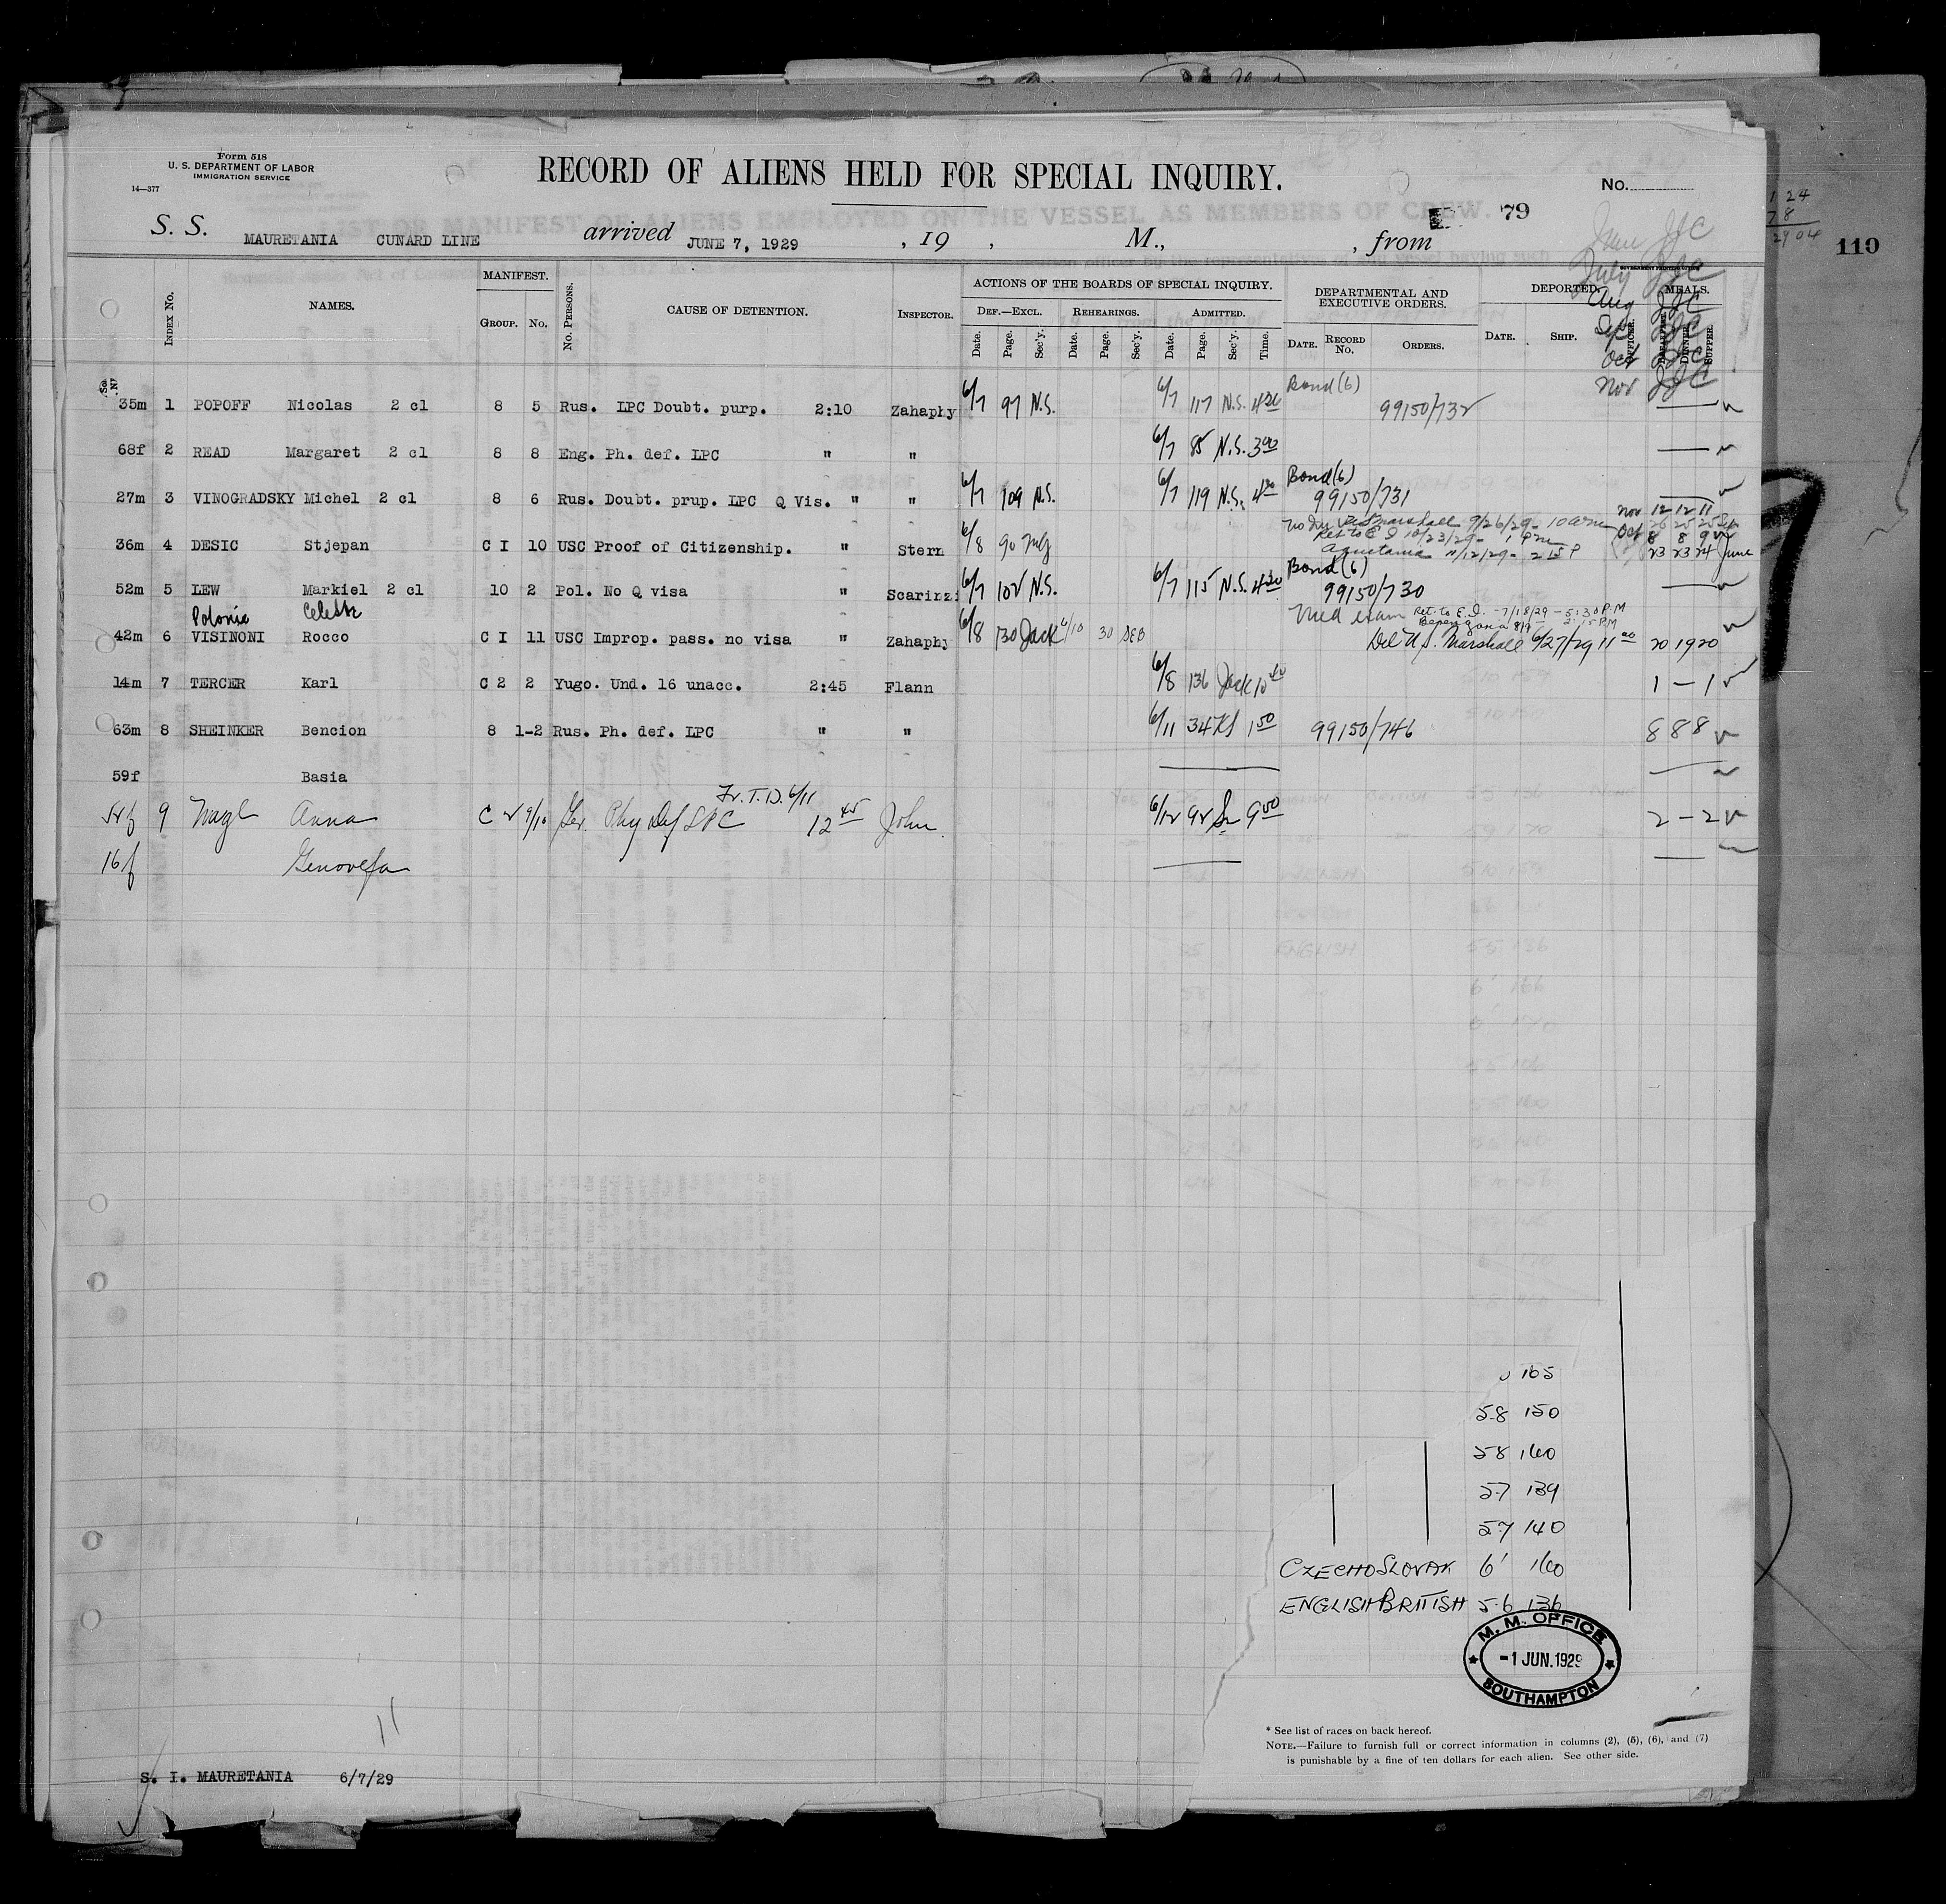 Form 518
U. S. DEPARTMENT OF LABOR
IMMIGRATION SERVICE
14—377
RECORD OF ALIENS HELD FOR SPECIAL INQUIRY.
No.
79
110
1 24
2904
S. S. MAURETANIA CUNARD LINE arrived JUNE 7, 1929 , 19 , M., , from
LIST OR MANIFEST OF ALIENS EMPLOYED ON THE VESSEL AS MEMBERS OF CREW.
June JJC
July JJC
Aug JJC
Sep JJC
Oct JJC
Nov JJC
INDEX NO. NAMES. MANIFEST. GROUP. NO. NO. PERSONS. CAUSE OF DETENTION. INSPECTOR. ACTIONS OF THE BOARDS OF SPECIAL INQUIRY. DEF.—EXCL. REHEARINGS. ADMITTED. DEPARTMENTAL AND EXECUTIVE ORDERS. DEPORTED. MEALS.
Date. Page. Sec'y. Date. Page. Sec'y. Date. Page. Sec'y. Time. DATE. RECORD NO. ORDERS. DATE. SHIP. OFFICER. BREAKFAST. DINNER. SUPPER.
35m 1 POPOFF Nicolas 2 cl 8 5 Rus. LPC Doubt. purp. 2:10 Zahaphy 6/7 97 N.S. 6/7 117 N.S. 430 Bond (6) 99150/732
68f 2 READ Margaret 2 cl 8 8 Eng. Ph. def. LPC " " 6/7 85 N.S. 300
27m 3 VINOGRADSKY Michel 2 cl 8 6 Rus. Doubt. prup. LPC Q Vis. " " 6/7 109 N.S. 6/7 119 N.S. 430 Bond (6) 99150/731
Nov 12 12 11
36m 4 DESIC Stjepan C I 10 USC Proof of Citizenship. " Stern 6/8 90 Marshall 9/26/29 - 10 am
Ret to E I 10/23/29 - 1 Pm
Aquitania 11/12/29 - 2 15 P
Oct 8 8 9
23 23 24 June
52m 5 LEW Markiel 2 cl 10 2 Pol. No Q visa " Scarinzi 6/7 102 N.S. 6/7 115 N.S. 430 Bond (6) 99150/730
Polonia Celeste
42m 6 VISINONI Rocco C I 11 USC Improp. pass. no visa " Zahaphy 6/8 130 Jack 6/10 30 SEB Med exam Ret. to E. I. - 7/18/29 - 5:30 P.M
Berengaria 8/9 - 2:15 PM
Del U. S. Marshall 6/27/29 11 00 20 19 20
14m 7 TERCER Karl C 2 2 Yugo. Und. 16 unacc. 2:45 Flann 6/8 136 Jack 10 40 1 — 1
63m 8 SHEINKER Bencion 8 1-2 Rus. Ph. def. LPC " " 6/11 34 KS 1 50 99150/746 8 8 8
59f Basia
Fr. T. D. 6/11
52f 9 Nagl Anna C 2 9/10 Ger. Phy Def LPC 12 45 John 6/12 92 9 00 2 — 2
16f Genovefa
165
5.8 150
5.8 160
5.7 139
5.7 140
CZECHOSLOVAK 6' 160
ENGLISH BRITISH 5.6 136
M. M. OFFICE
-1 JUN. 1929
SOUTHAMPTON
* See list of races on back hereof.
NOTE.—Failure to furnish full or correct information in columns (2), (5), (6), and (7)
is punishable by a fine of ten dollars for each alien. See other side.
11
S. I. MAURETANIA 6/7/29